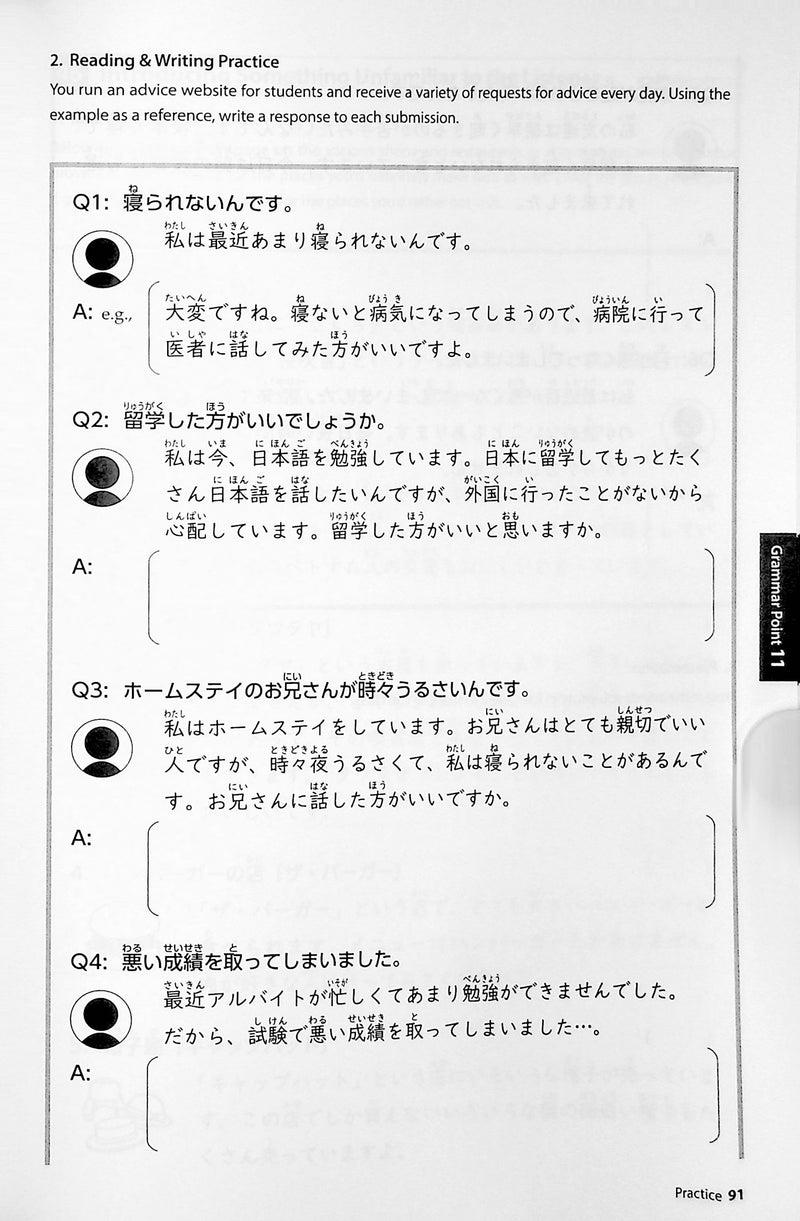 2. Reading & Writing Practice
You run an advice website for students and receive a variety of requests for advice every day. Using the
example as a reference, write a response to each submission.
Q1: 寝られないんです。
私は最近あまり寝られないんです。
A: e.g., 大変ですね。寝ないと病気になってしまうので、病院に行って
医者に話してみた方がいいですよ。
Q2: 留学した方がいいでしょうか。
私は今、日本語を勉強しています。日本に留学してもっとたく
さん日本語を話したいんですが、外国に行ったことがないから
心配しています。留学した方がいいと思いますか。
A:
Q3: ホームステイのお兄さんが時々うるさいんです。
私はホームステイをしています。お兄さんはとても親切でいい
人ですが、時々夜うるさくて、私は寝られないことがあるんで
す。お兄さんに話した方がいいですか。
A:
Q4: 悪い成績を取ってしまいました。
最近アルバイトが忙しくてあまり勉強ができませんでした。
だから、試験で悪い成績を取ってしまいました…。
A:
Grammar Point 11
Practice 91